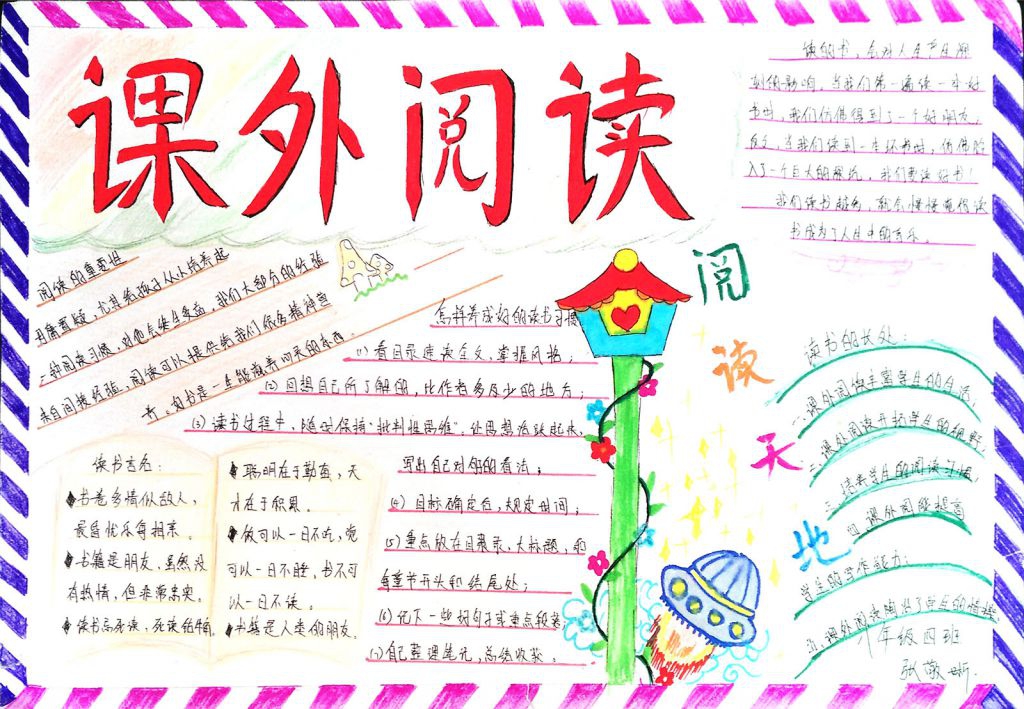 课外阅读
读的书，会对人生产生深
刻的影响，当我们第一遍读一本好
书时，我们仿佛得到了一个好朋友，
当我们读到一本坏书时，仿佛陷
入了一个巨大的深坑，我们要读好书！
我们读书越多，就会慢慢
书成为了人生中的音乐。
阅读的重要性
毋庸置疑，尤其给孩子从小培养起
一种阅读习惯，对他会终生受益，我们大部分的经验
来自间接经验，阅读可以提供给我们很多精神营
养，因书是一生能滋养心灵的东西。
怎样养成好的读书习惯
(1) 看目录速读全文，掌握风格；
(2) 回想自己所了解的，比作者多及少的地方；
(3) 读书过程中，随时保持“批判性思维”，让思想活跃起来，
写出自己对的看法；
(4) 目标确定后，规定时间；
(5) 重点放在目录，大标题，和
每章节开头和结尾处；
(6) 记下一些好句子或重点段落
(7) 自己整理笔记，总结收获。
读书名言：
◆书卷多情似故人，
晨昏忧乐每相亲。
◆书籍是朋友，虽然没
有热情，但非常忠实。
◆读书
◆聪明在于勤奋，天
才在于积累。
◆饭可以一日不吃，觉
可以一日不睡，书不可
以一日不读。
◆书籍是人类的朋友。
阅读天地
读书的长处：
一、课外阅读丰富学生的生活；
二、课外阅读开拓学生的视野；
三、培养学生的阅读习惯；
四、课外阅读能提高
学生的写作能力；
五、课外阅读陶冶了学生的情操。
年级四班
张